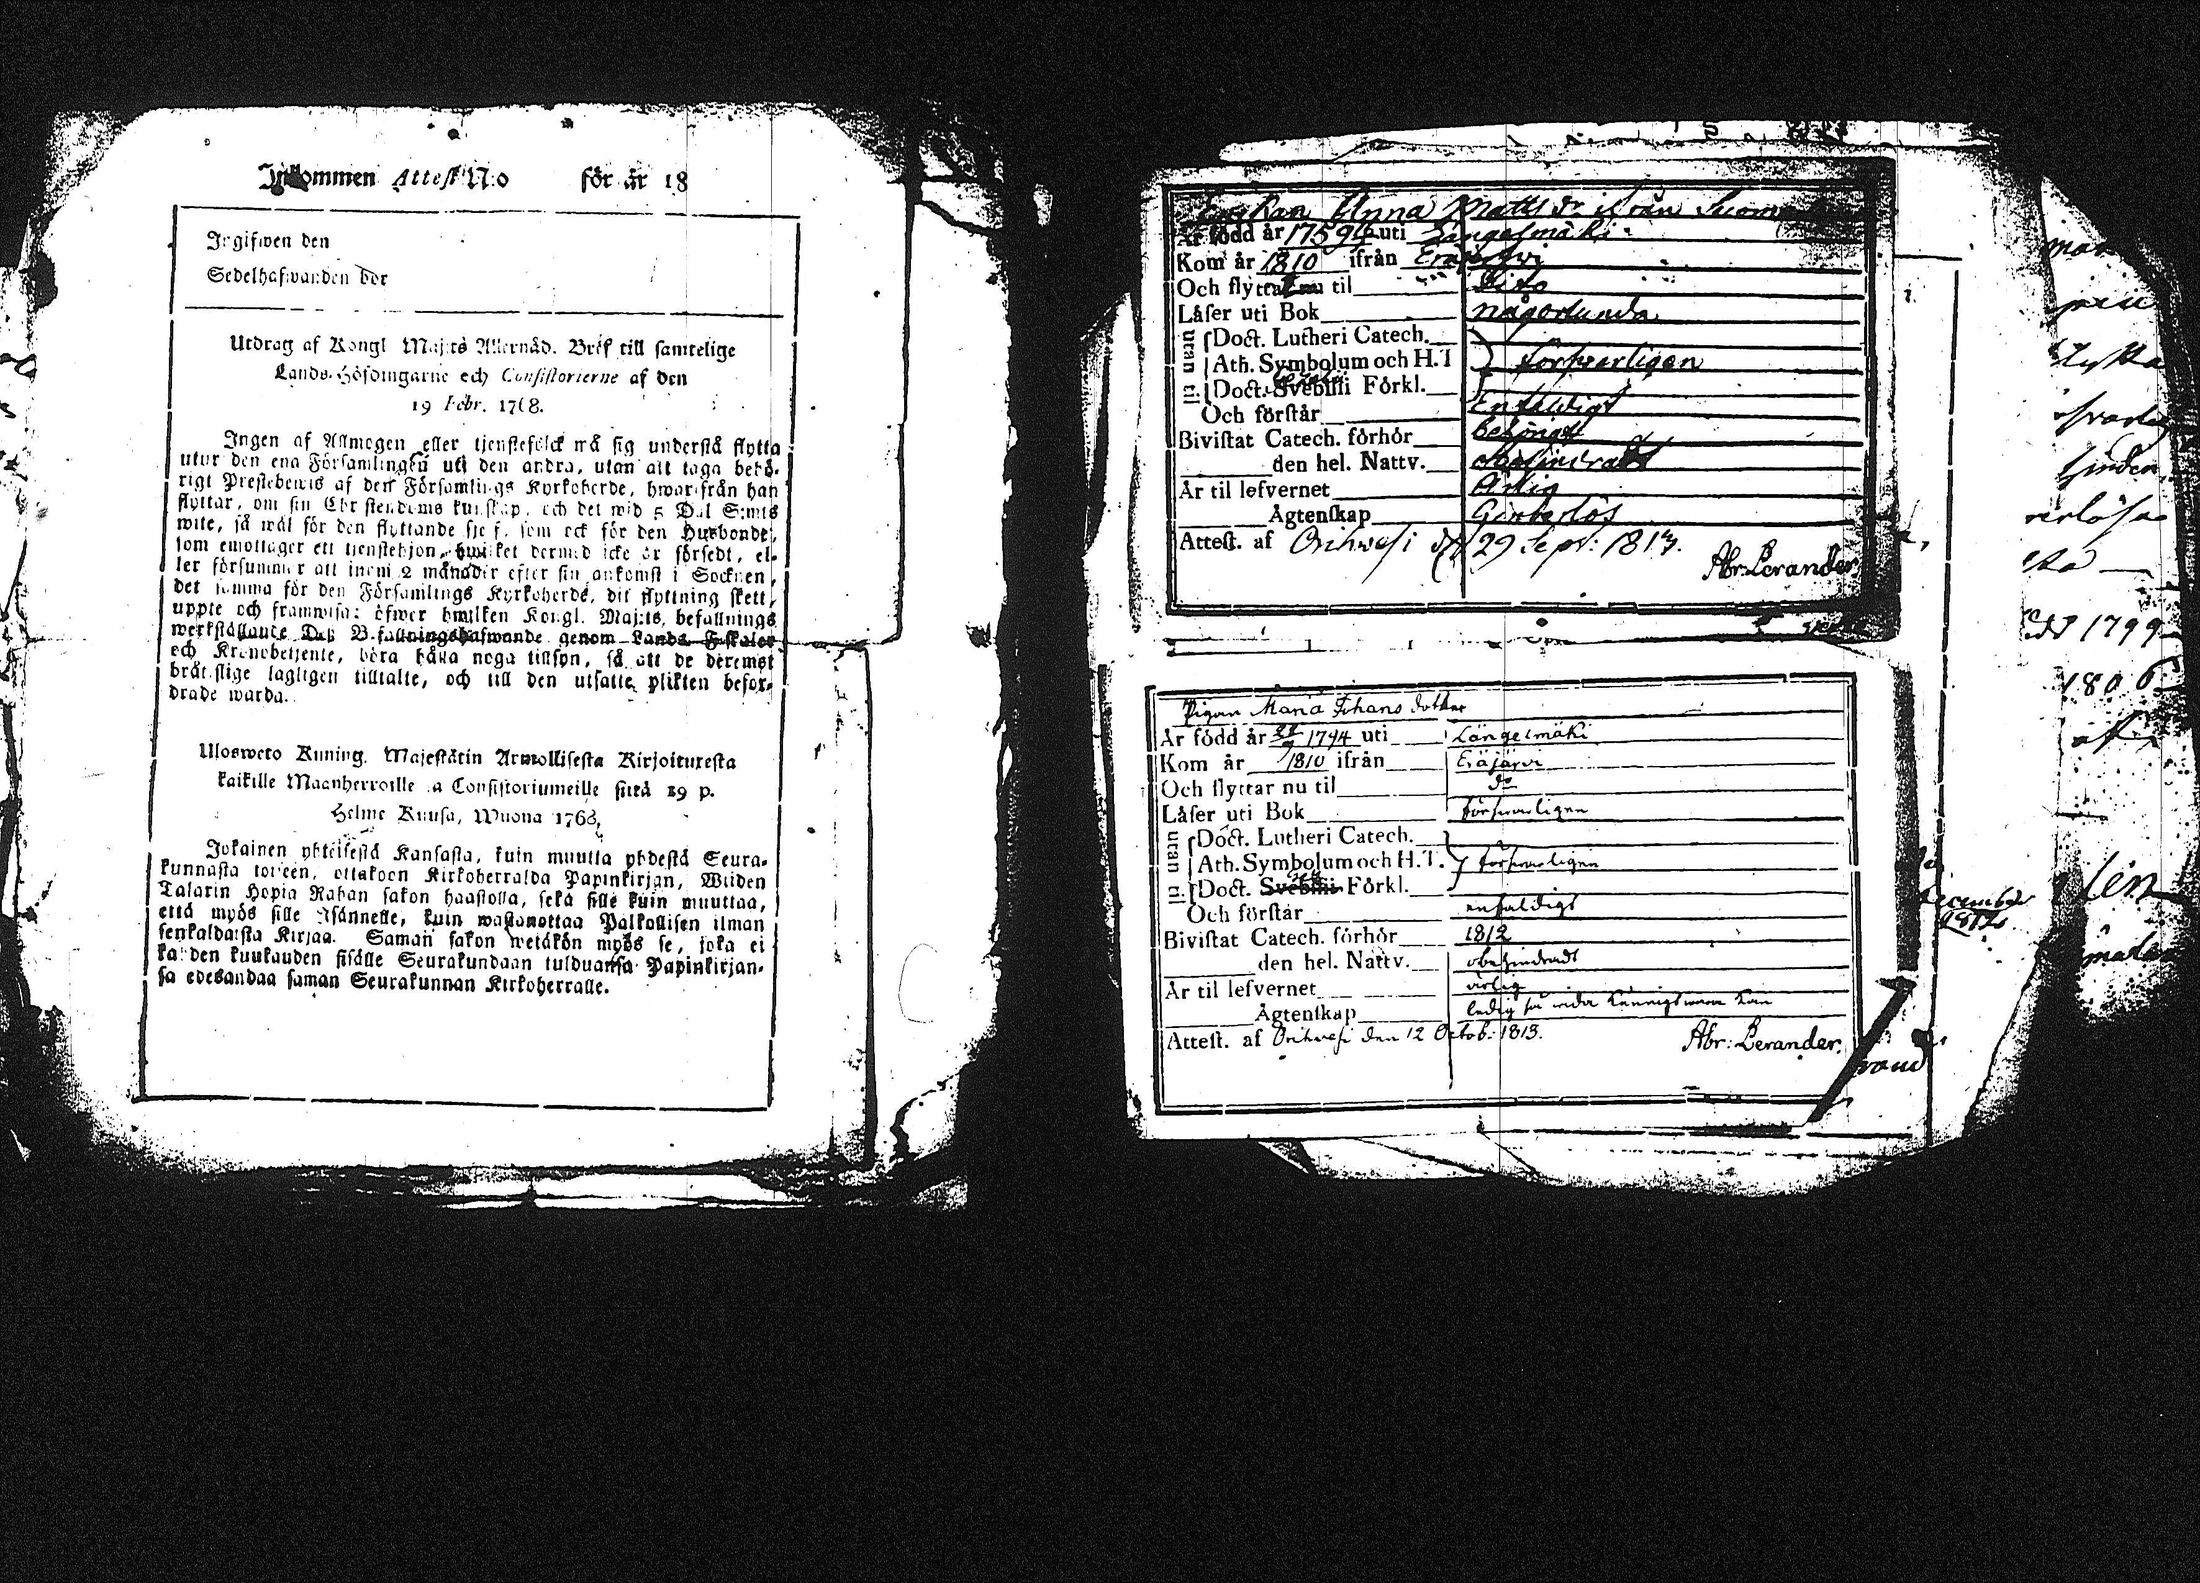 Inkommen Attest N:o för år 18
Ingifwen den
Sedelhafwanden bor
Utdrag af Kongl Maj:ts Allernåd. Bref till samtelige
Lands-Höfdingarne och Consistorierne af den
19 Febr. 1768.
Ingen af Allmogen eller tjenstefolck må sig understå flytta
utur den ena Församlingen uti den andra, utan att taga behö-
rigt Prestebewis af den Församlings Kyrkoherde, hwarifrån han
flyttar, om sin Christendoms kunskap, och det wid 5 Dal S:mts
wite, så wäl för den flyttande sjelf, som ock för den Husbonde,
som emottager ett tjenstehjon, hwilket dermed icke är försedt, el-
ler försummar att inom 2 månader efter sin ankomst i Socknen,
det samma för den Församlings Kyrkoherde, dit flyttning skett,
uppte och framwisa: öfwer hwilken Kongl. Maj:ts befallnings
werkställande Deß Befallningshafwande genom Lands-Fiskaler
och Kronobetjente, böra hålla noga tillsyn, så att de deremot
brätslige lagligen tilltalte, och till den utsatte plikten befor-
drade warda.
Uloswеto Kuning. Majestätin Armollisesta Kirjoituxesta
kaikille Maanherroille ja Consistoriumeille siitä 19 p.
Helme Kuusa, Wuona 1768,
Jokainen yhteisestä Kansasta, kuin muutta yhdestä Seura-
kunnasta toiseen, ottakoon Kirkoherralda Papinkirjan, Wiiden
Talarin Hopia Rahan sakon haastolla, sekä sille kuin muuttaa,
että myös sille Isännelle, kuin wastanottaa Palkollisen ilman
senkaldaista Kirjaa. Saman sakon wetäkön myös se, joka ei
kahden kuukauden sisälle Seurakundaan tulduansa Papinkirjan-
sa edesandaa saman Seurakunnan Kirkoherralle.
Enkan Anna Matts dr ifrån
Är född år 1759 uti Längelmäki
Kom år 1810 ifrån Eräjerwi
Och flyttar nu til Dito
Låser uti Bok någorlunda
utan til
Doct. Lutheri Catech.
Ath. Symbolum och H.T försvarligen
Doct. Svebilii Förkl.
Och förstår Enfaldigt
Bivistat Catech. förhör
den hel. Nattv. obehindradt
Är til lefvernet Ärlig
Ägtenskap
Attest. af Orihwesi d. 29 Sept: 1813.
Abr: Lerander
Pigan Maria Johans dotter
År född år 1794 uti Längelmäki
Kom år 1810 ifrån Eräjärvi
Och flyttar nu til do
Låser uti Bok försvarligen
utan til
Doct. Lutheri Catech.
Ath. Symbolum och H.T. försvarligen
Doct. Svebilii Förkl.
Och förstår enfaldigt
Bivistat Catech. förhör 1812
den hel. Nattv. obehindradt
Är til lefvernet ärlig
Ägtenskap ledig
Attest. af Orihwesi den 12 Octob: 1813.
Abr: Lerander.
1799
1806
af
December
1812